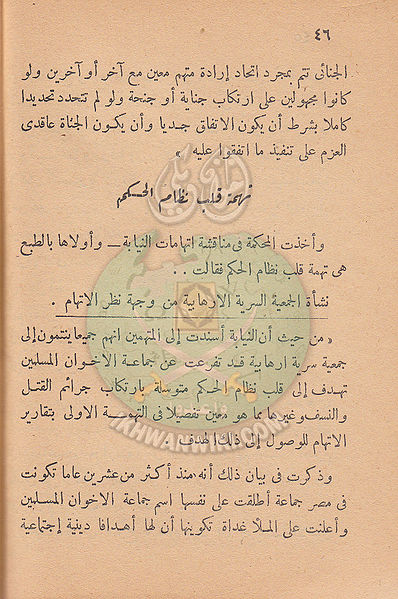 ٤٦
الجنائى تتم بمجرد اتحاد إرادة متهم معين مع آخر أو آخرين ولو
كانوا مجهولين على ارتكاب جناية أو جنحة ولو لم تتحدد تحديدا
كاملا بشرط أن يكون الاتفاق جديا وأن يكون الجناة عاقدى
العزم على تنفيذ ما اتفقوا عليه »
تهمة قلب نظام الحكم
وأخذت المحكمة فى مناقشة اتهامات النيابة — وأولاها بالطبع
هى تهمة قلب نظام الحكم فقالت . .
نشأة الجمعية السرية الارهابية من وجهة نظر الاتهام .
« من حيث أن النيابة أسندت إلى المتهمين انهم جميعا ينتمون إلى
جمعية سرية ارهابية قد تفرعت عن جماعة الاخوان المسلمين
تهدف إلى قلب نظام الحكم متوسلة بارتكاب جرائم القتل
والنسف وغيرها بما هو معين تفصيلا فى التهمة الاولى بتقارير
الاتهام للوصول إلى ذلك الهدف
وذكرت فى بيان ذلك أنه منذ أكثر من عشرين عاما تكونت
فى مصر جماعة أطلقت على نفسها اسم جماعة الاخوان المسلمين
وأعلنت على الملأ غداة تكوينها أن لها أهدافا دينية إجتماعية
IKHWANWIKI.COM